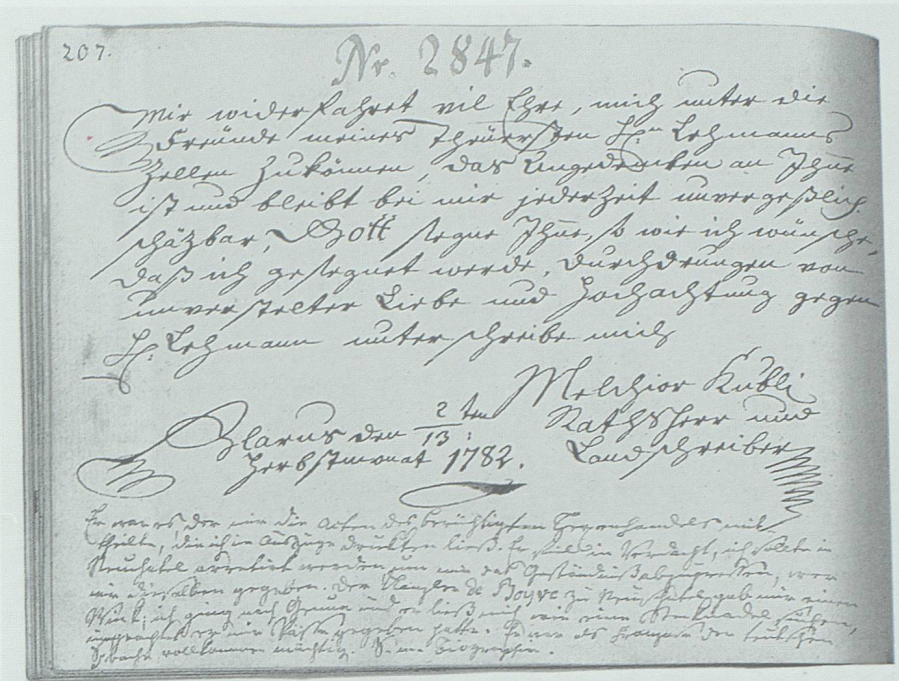 207.
Nr. 2847.
Mir widerfahret vil Ehre, mich unter die
Freünde meines Theüersten Hn Lehmanns
Zellen zukönnen, das Angedencken an Ihne
ist und bleibt bei mir jederzeit unvergeßlich
schäzbar, Gott segne Ihne, so wie ich wünsche,
daß ich gesegnet werde, Durchdrungen von
unverstelter Liebe und Hochachtung gegen
H. Lehmann unterschreibe mich
Melchior Kubli
Rathsherr und
Landschreiber
Glarus den 2/13 ten
Herbstmonat 1782.
Er war es der mir die Acten des berüchtigten Hexenhandels mit
theilte, die ich im Auszuge drucken ließ. Er fiel in Verdacht, ich sollte in
Neuchatel arretirt werden um mir das Geständniß abzupressen, wer
mir dieselben gegeben. Der Kanzler de Boyve zu Neuchatel gab mir einen
Wink; ich ging nach und er ließ mich wie eine Stecknadel suchen,
ungeachtet er mir Pässe gegeben hatte. Er war als Franzose der teutschen
Sprache vollkommen mächtig. S. me. biographie.